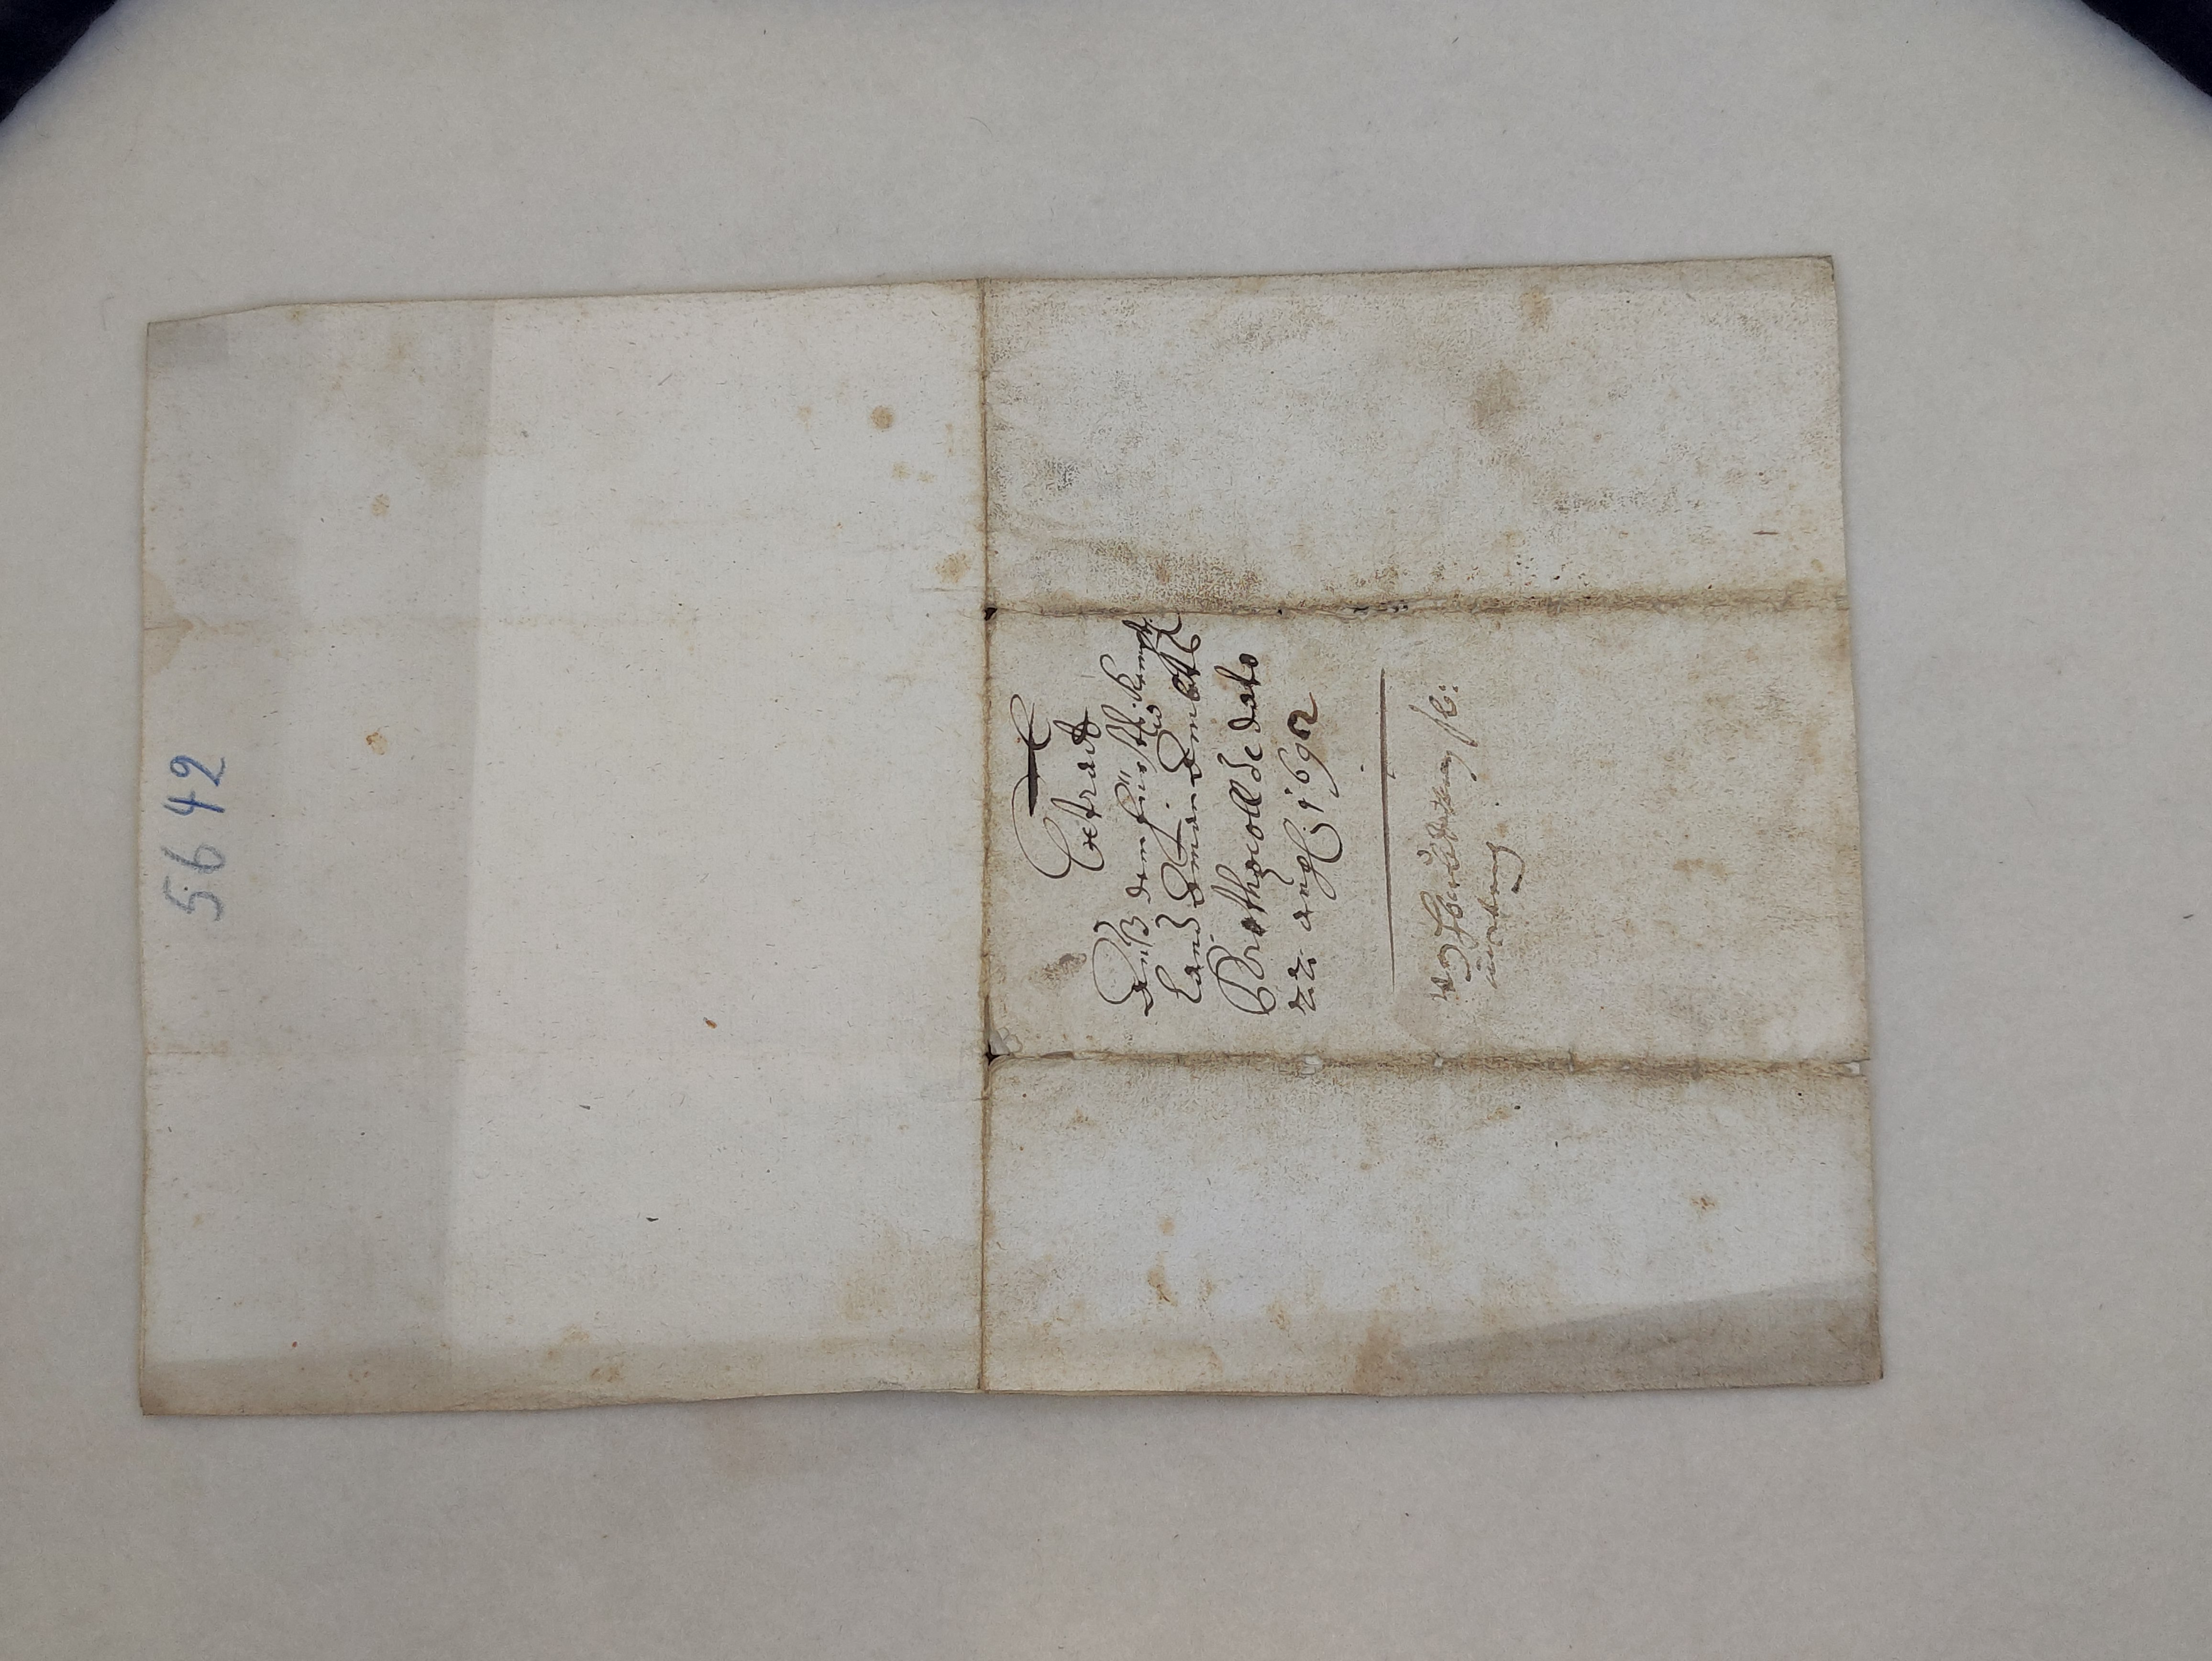 5642
Extract
Auß dem Fürstl: Kempt:
Land Amman Ambts
Prothocoll de dato
22: aug: 1692